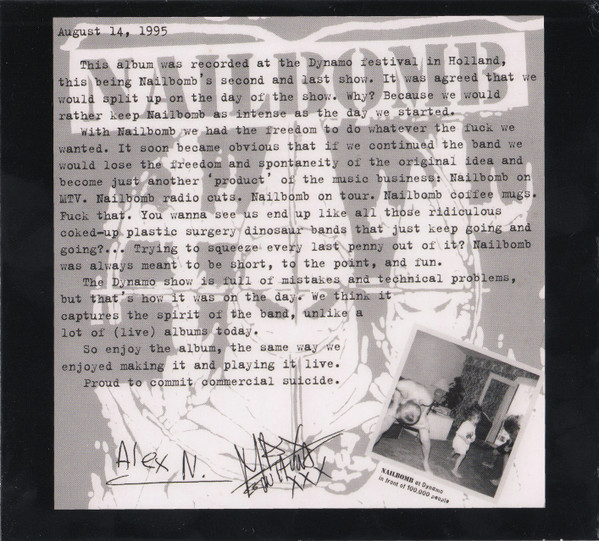 August 14, 1995
NAILBOMB
This album was recorded at the Dynamo festival in Holland,
this being Nailbomb's second and last show. It was agreed that we
would split up on the day of the show. Why? Because we would
rather keep Nailbomb as intense as the day we started.
With Nailbomb we had the freedom to do whatever the fuck we
wanted. It soon became obvious that if we continued the band we
would lose the freedom and spontaneity of the original idea and
become just another 'product' of the music business: Nailbomb on
MTV. Nailbomb radio cuts. Nailbomb on tour. Nailbomb coffee mugs.
Fuck that. You wanna see us end up like all those ridiculous
coked-up plastic surgery dinosaur bands that just keep going and
going?... Trying to squeeze every last penny out of it? Nailbomb
was always meant to be short, to the point, and fun.
The Dynamo show is full of mistakes and technical problems,
but that's how it was on the day. We think it
captures the spirit of the band, unlike a
lot of (live) albums today.
So enjoy the album, the same way we
enjoyed making it and playing it live.
Proud to commit commercial suicide.
Alex N.
NAILBOMB at Dynamo
in front of 100,000 people